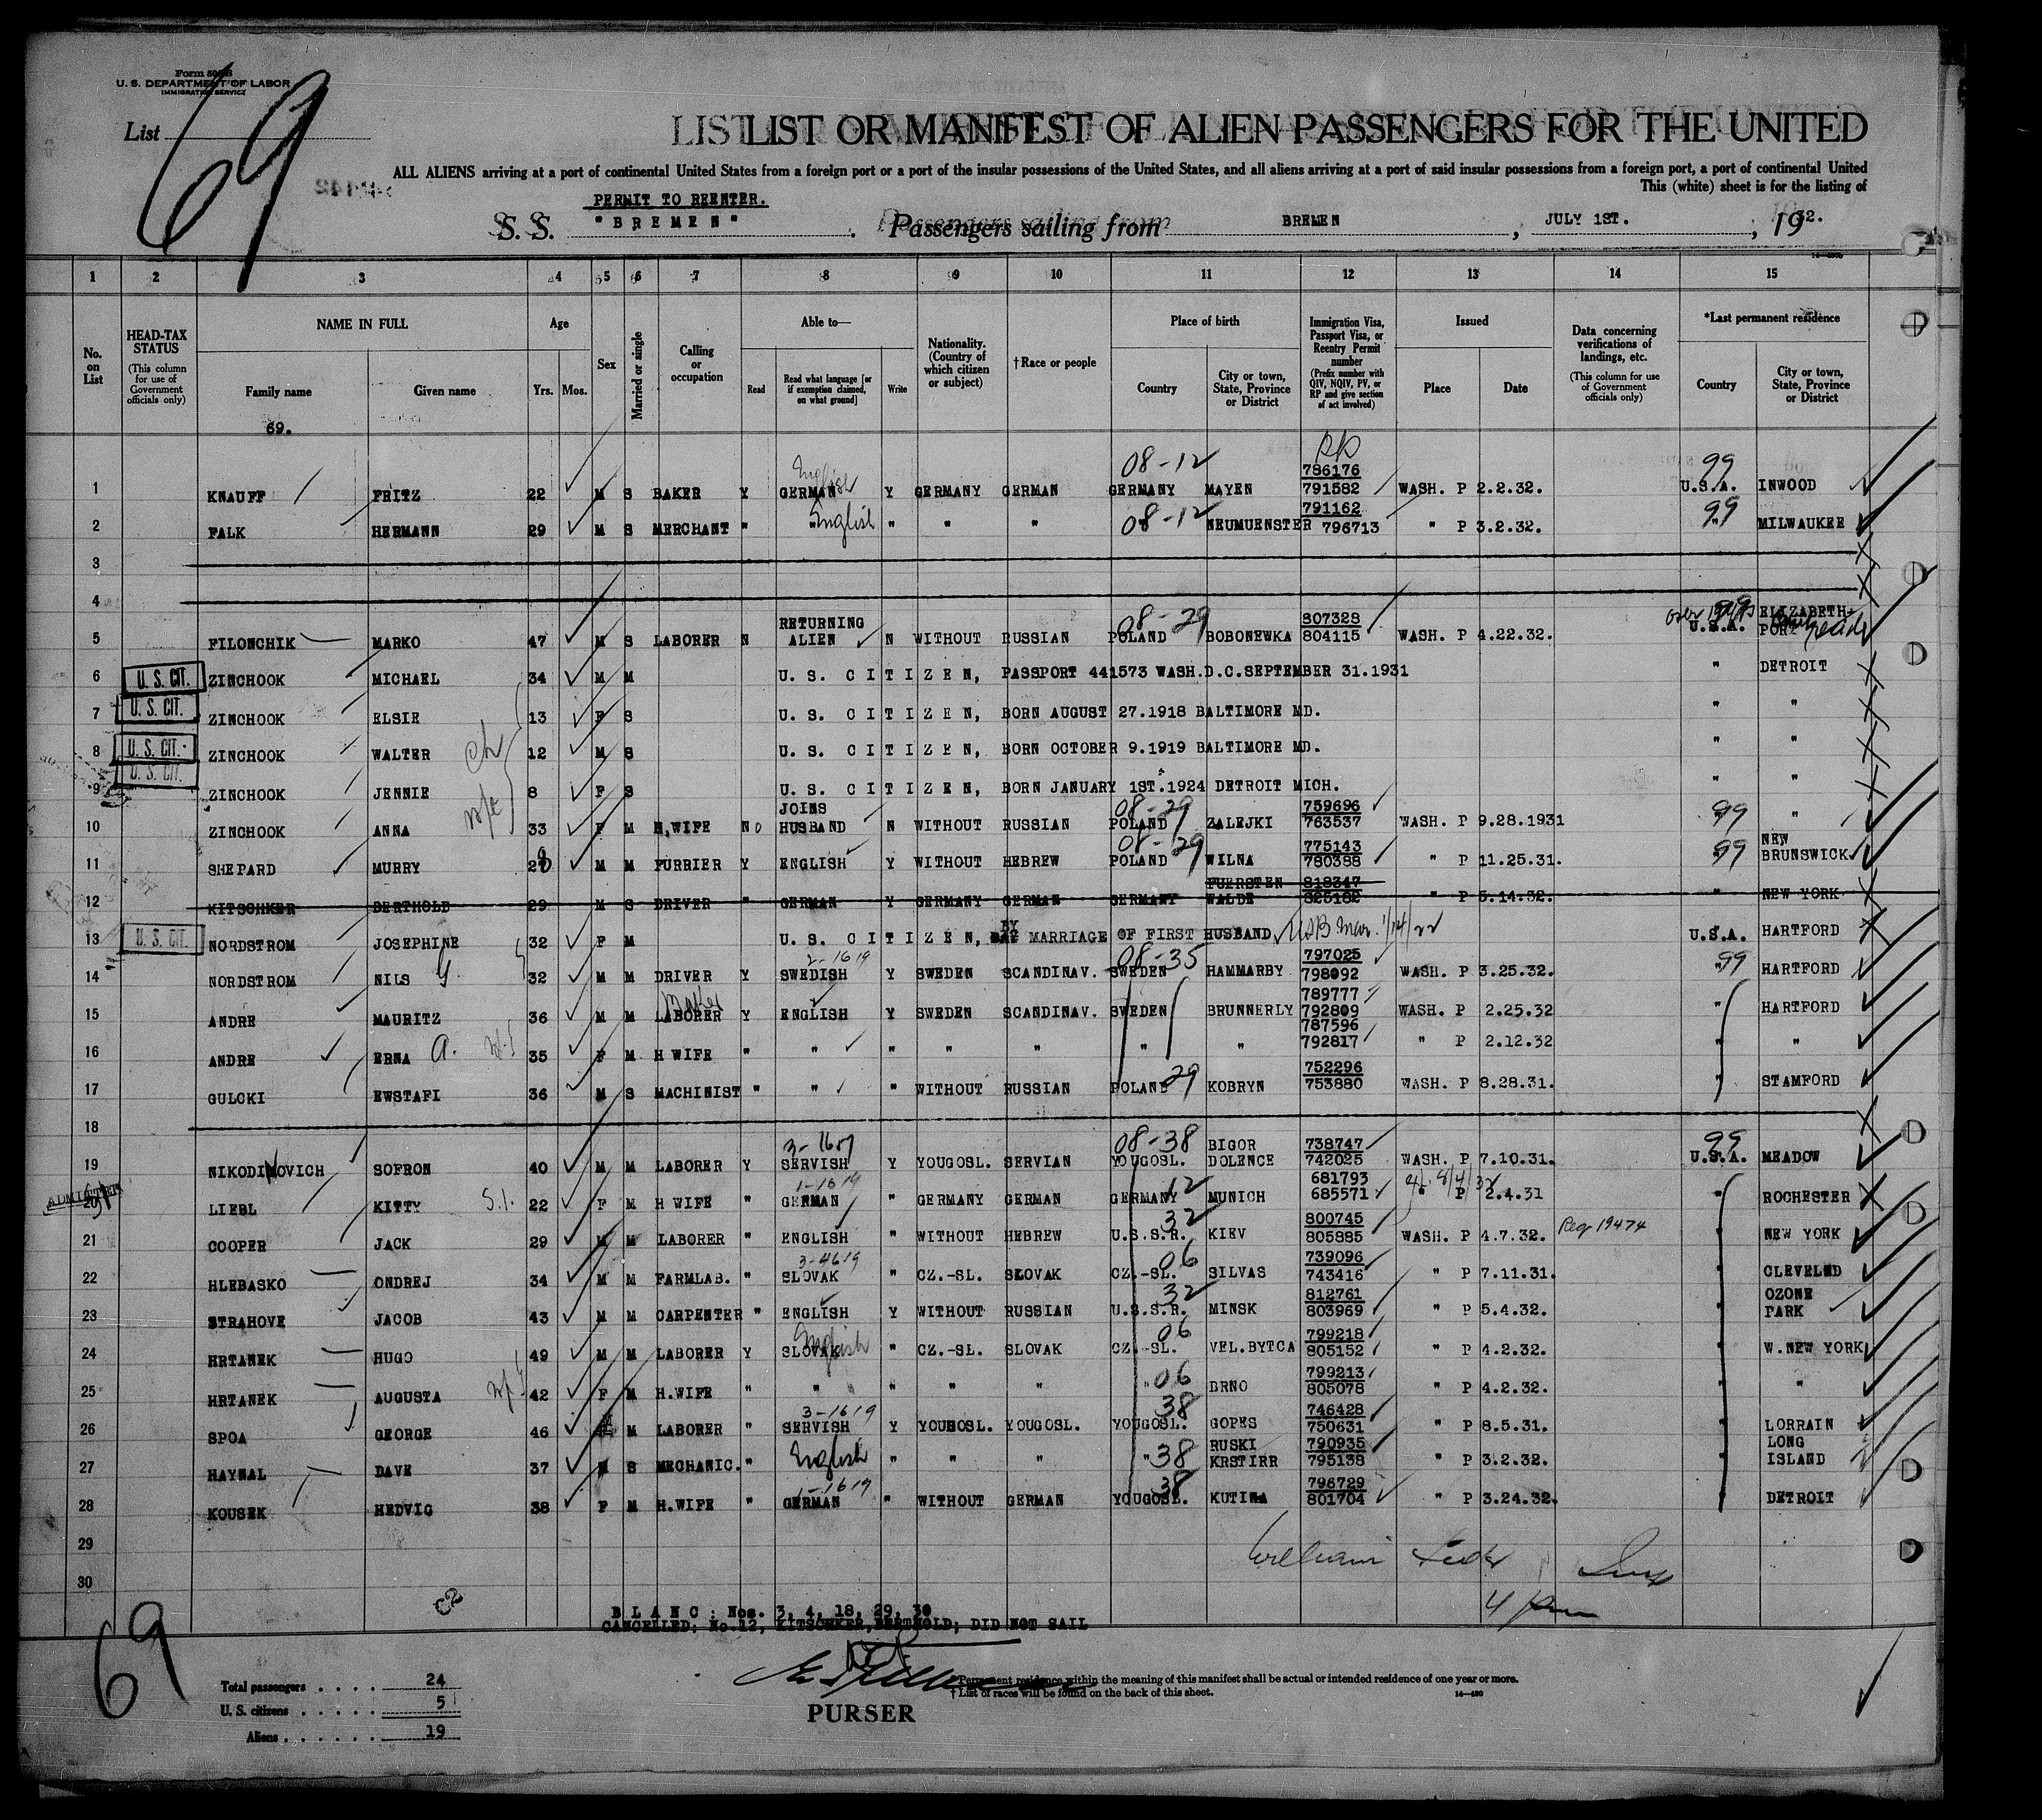 Form 500 B
U. S. DEPARTMENT OF LABOR
IMMIGRATION SERVICE
List 69
LIST OR MANIFEST OF ALIEN PASSENGERS FOR THE UNITED
ALL ALIENS arriving at a port of continental United States from a foreign port or a port of the insular possessions of the United States, and all aliens arriving at a port of said insular possessions from a foreign port, a port of continental United
This (white) sheet is for the listing of
PERMIT TO REENTER.
S. S. "BREMEN". Passengers sailing from BREMEN, JULY 1ST., 1932.
1 2 3 4 5 6 7 8 9 10 11 12 13 14 15
No. on List
HEAD-TAX STATUS (This column for use of Government officials only)
NAME IN FULL Family name Given name
Age Yrs. Mos.
Sex
Married or single
Calling or occupation
Able to— Read Read what language [or if exemption claimed, on what ground] Write
Nationality. (Country of which citizen or subject)
†Race or people
Place of birth Country City or town, State, Province or District
Immigration Visa, Passport Visa, or Reentry Permit number (Prefix number with QIV, NQIV, PV, or RP and give section of act involved)
Issued Place Date
Data concerning verifications of landings, etc. (This column for use of Government officials only)
*Last permanent residence Country City or town, State, Province or District
69.
1 KNAUFF FRITZ 22 M S BAKER Y GERMAN English Y GERMANY GERMAN GERMANY 08-12 MAYEN RP 786176 791582 WASH. P 2.2.32. U.S.A. 99 INWOOD
2 FALK HERMANN 29 M S MERCHANT " " English " " " 08-12 NEUMUENSTER 791162 796713 " P 3.2.32. " 99 MILWAUKEE
3
4
5 FILONCHIK MARKO 47 M S LABORER N RETURNING ALIEN N WITHOUT RUSSIAN POLAND 08-29 BOBONEWKA 807328 804115 WASH. P 4.22.32. U.S.A. 99 ELIZABETH-PORT
6 U. S. CIT. ZINCHOOK MICHAEL 34 M M U. S. CITIZEN, PASSPORT 441573 WASH.D.C.SEPTEMBER 31.1931 " DETROIT
7 U. S. CIT. ZINCHOOK ELSIE 13 F S U. S. CITIZEN, BORN AUGUST 27.1918 BALTIMORE MD. " "
8 U. S. CIT. ZINCHOOK WALTER 12 M S U. S. CITIZEN, BORN OCTOBER 9.1919 BALTIMORE MD. " "
9 U. S. CIT. ZINCHOOK JENNIE 8 F S U. S. CITIZEN, BORN JANUARY 1ST.1924 DETROIT MICH. " "
10 ZINCHOOK ANNA 33 F M H,WIFE NO JOINS HUSBAND N WITHOUT RUSSIAN POLAND 08-29 ZALEJKI 759696 763537 WASH. P 9.28.1931 99 "
11 SHEPARD MURRY M M FURRIER Y ENGLISH Y WITHOUT HEBREW POLAND 08-29 WILNA 775143 780388 " P 11.25.31. " 99 NEW BRUNSWICK
12 KITSCHKER BERTHOLD 29 M S DRIVER " GERMAN Y GERMANY GERMAN GERMANY FUERSTEN WALDE 818347 825182 " P 5.14.32. " NEW YORK
13 U. S. CIT. NORDSTROM JOSEPHINE 32 F M U. S. CITIZEN, BY MARRIAGE OF FIRST HUSBAND U.S.A. HARTFORD
14 NORDSTROM NILS G 32 M M DRIVER Y SWEDISH 2-1619 Y SWEDEN SCANDINAV. SWEDEN 08-35 HAMMARBY 797025 798092 WASH. P 3.25.32. " 99 HARTFORD
15 ANDRE MAURITZ 36 M M LABORER Y ENGLISH Y SWEDEN SCANDINAV. SWEDEN BRUNNERLY 789777 792809 WASH. P 2.25.32 " HARTFORD
16 ANDRE ERNA A. 35 F M H WIFE " " " " " " " 787596 792817 " P 2.12.32 " "
17 GULCKI EWSTAFI 36 M S MACHINIST " " " WITHOUT RUSSIAN POLAND 29 KOBRYN 752296 753880 WASH. P 8.28.31. " STAMFORD
18
19 NIKODINOVICH SOFRON 40 M M LABORER Y SERVISH Y YOUGOSL. SERVIAN YOUGOSL. 08-38 BIGOR DOLENCE 738747 742025 WASH. P 7.10.31. U.S.A. 99 MEADOW
ADMITTED
20 LIEBL KITTY S.I. 22 F M H WIFE " GERMAN 1-1619 " GERMANY GERMAN GERMANY 12 MUNICH 681793 685571 " P 2.4.31 " ROCHESTER
21 COOPER JACK 29 M M LABORER " ENGLISH " WITHOUT HEBREW U.S.S.R. 32 KIEV 800745 805885 WASH. P 4.7.32. Reg 19474 " NEW YORK
22 HLEBASKO ONDREJ 34 M M FARMLAB. " SLOVAK 3-4619 " CZ.-SL. SLOVAK CZ.-SL. 06 SILVAS 739096 743416 " P 7.11.31. " CLEVELND
23 STRAHOVE JACOB 43 M M CARPENTER " ENGLISH Y WITHOUT RUSSIAN U.S.S.R. 32 MINSK 812761 803969 " P 5.4.32. " OZONE PARK
24 HRTANEK HUGO 49 M M LABORER Y SLOVAK English " CZ.-SL. SLOVAK CZ.-SL. 06 VEL.BYTCA 799218 805152 " P 4.2.32. " W.NEW YORK
25 HRTANEK AUGUSTA 42 F M H.WIFE " " " " " " 06 BRNO 799213 805078 " P 4.2.32. " "
26 SPOA GEORGE 46 M M LABORER " SERVISH 3-1619 Y YOUGOSL. YOUGOSL. YOUGOSL. 38 GOPES 746428 750631 " P 8.5.31. " LORRAIN
27 HAYNAL DAVE 37 M S MECHANIC. " English " " " " 38 RUSKI KRSTIRR 790935 795138 " P 3.2.32. " LONG ISLAND
28 KOUSEK HEDVIG 38 F M H.WIFE " GERMAN 1-1619 " WITHOUT GERMAN YOUGOSL. 38 KUTINA 796729 801704 " P 3.24.32. DETROIT
29
30
William
BLANC: Nos. 3, 4, 18, 29, 30
CANCELLED: No.12, KITSCHKER, BERTHOLD; DID NOT SAIL
69
Total passengers . . . . 24
U. S. citizens . . . . . 5
Aliens . . . . . . 19
PURSER
*Permanent residence within the meaning of this manifest shall be actual or intended residence of one year or more.
†List of races will be found on the back of this sheet.
14—430